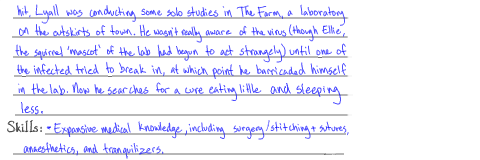 hit, Lyall was conducting some solo studies in The Farm, a laboratory
on the outskirts of town. He wasn't really aware of the virus (though Ellie,
the squirrel 'mascot' of the lab had begun to act strangely) until one of
the infected tried to break in, at which point he barricaded himself
in the lab. Now he searches for a cure eating little and sleeping
less.
Skills: • Expansive medical knowledge, including surgery/stitching + sutures,
anaesthetics, and tranquilizers.